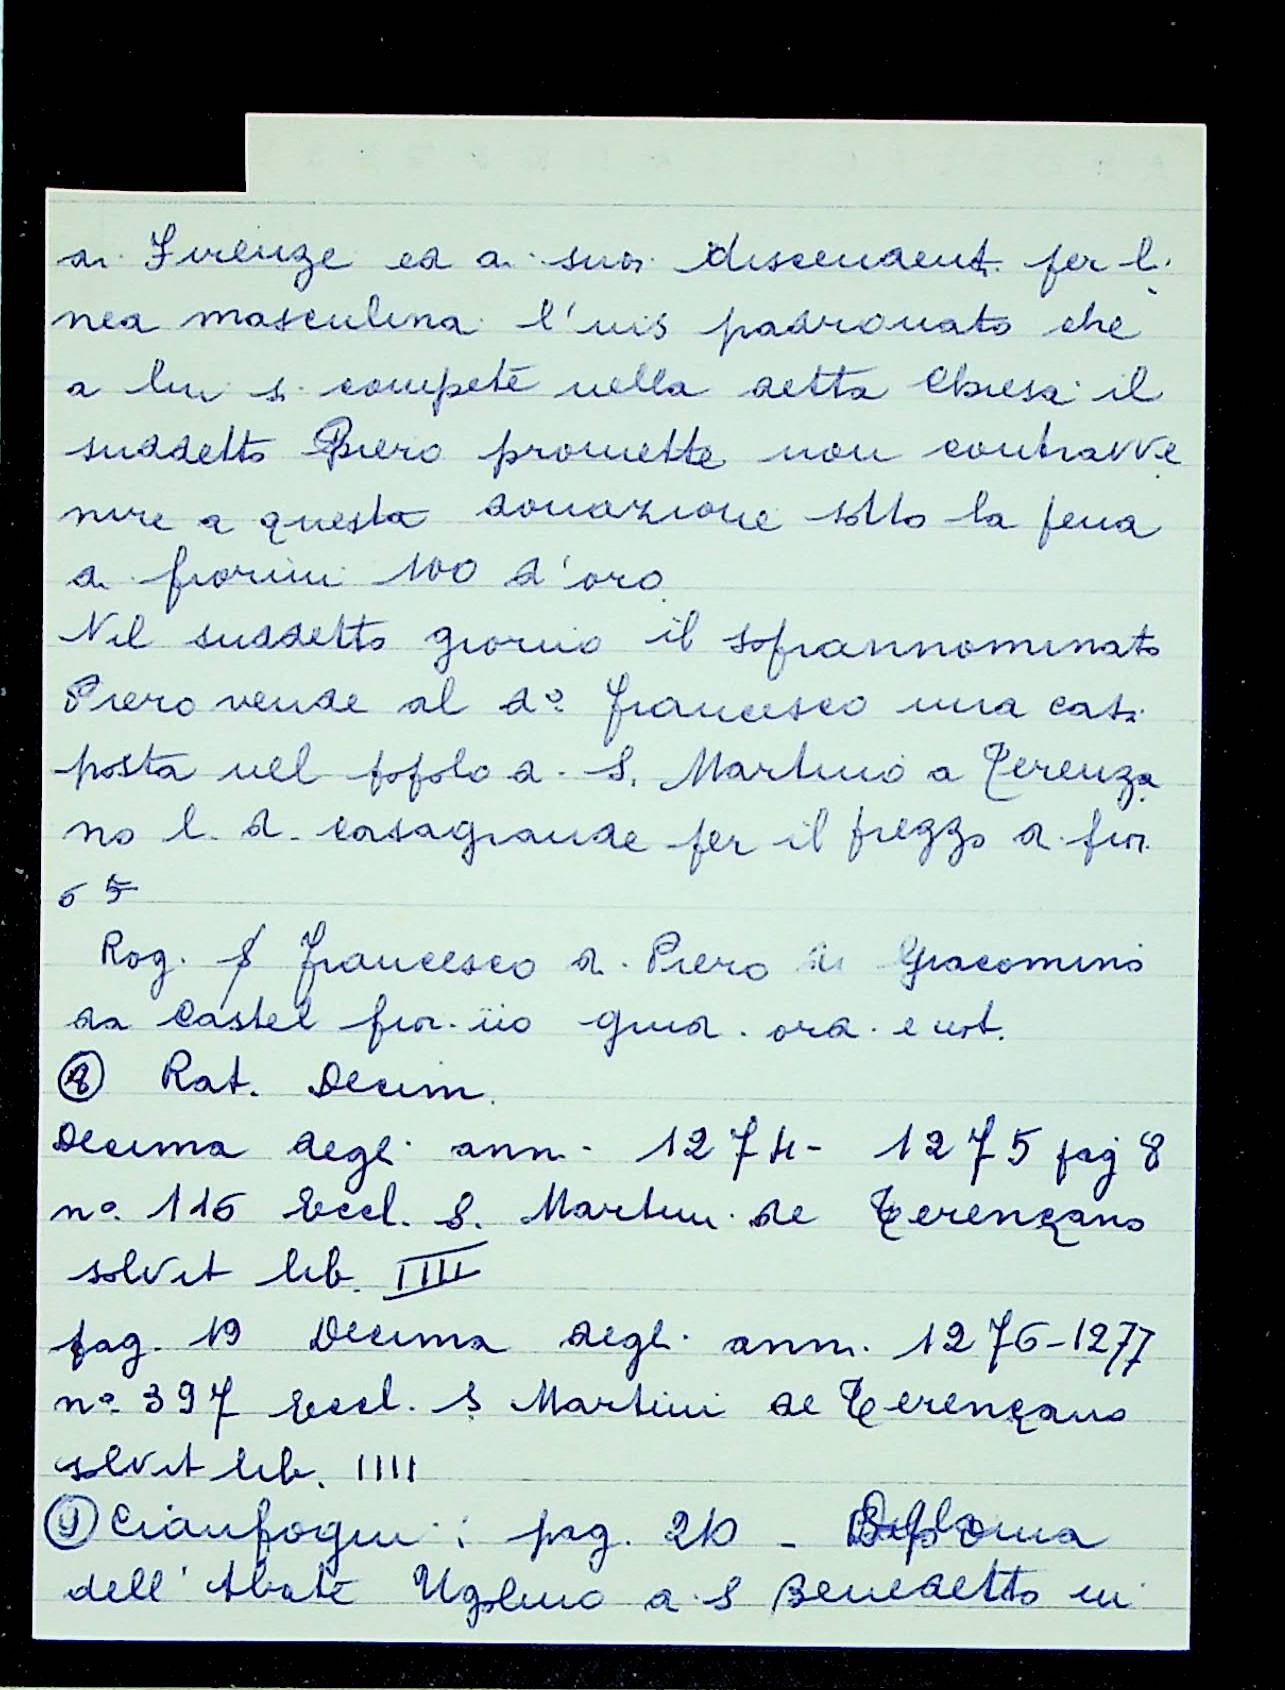 di Firenze ed a suoi discendenti per li
nea masculina l'uis padronato che
a lui si compete nella detta Chiesa il
suddetto Piero promette non contravve
nire a questa donazione sotto la pena
di fiorini 100 d'oro
Nel suddetto giorno il soprannominato
Piero vende al dº Francesco una casa
posta nel popolo di S. Martino a Terenza
no l. d. casagrande per il prezzo di fior.
65
Rog. S Francesco di Piero di Giacomino
da Castel fior.no giud. ord. e not.
⑧ Rat. Decim.
Decima degli anni 1274- 1275 pag 8
nº. 116 Eccl. S. Martini de Terenzano
solvit lib. IIII
pag. 19 Decima degli anni 1276-1277
nº. 397 Eccl. S Martini de Terenzano
solvit lib. IIII
⑨ Cianfogni: pag. 210 - Diploma
dell'Abate Ugolino di S Benedetto in